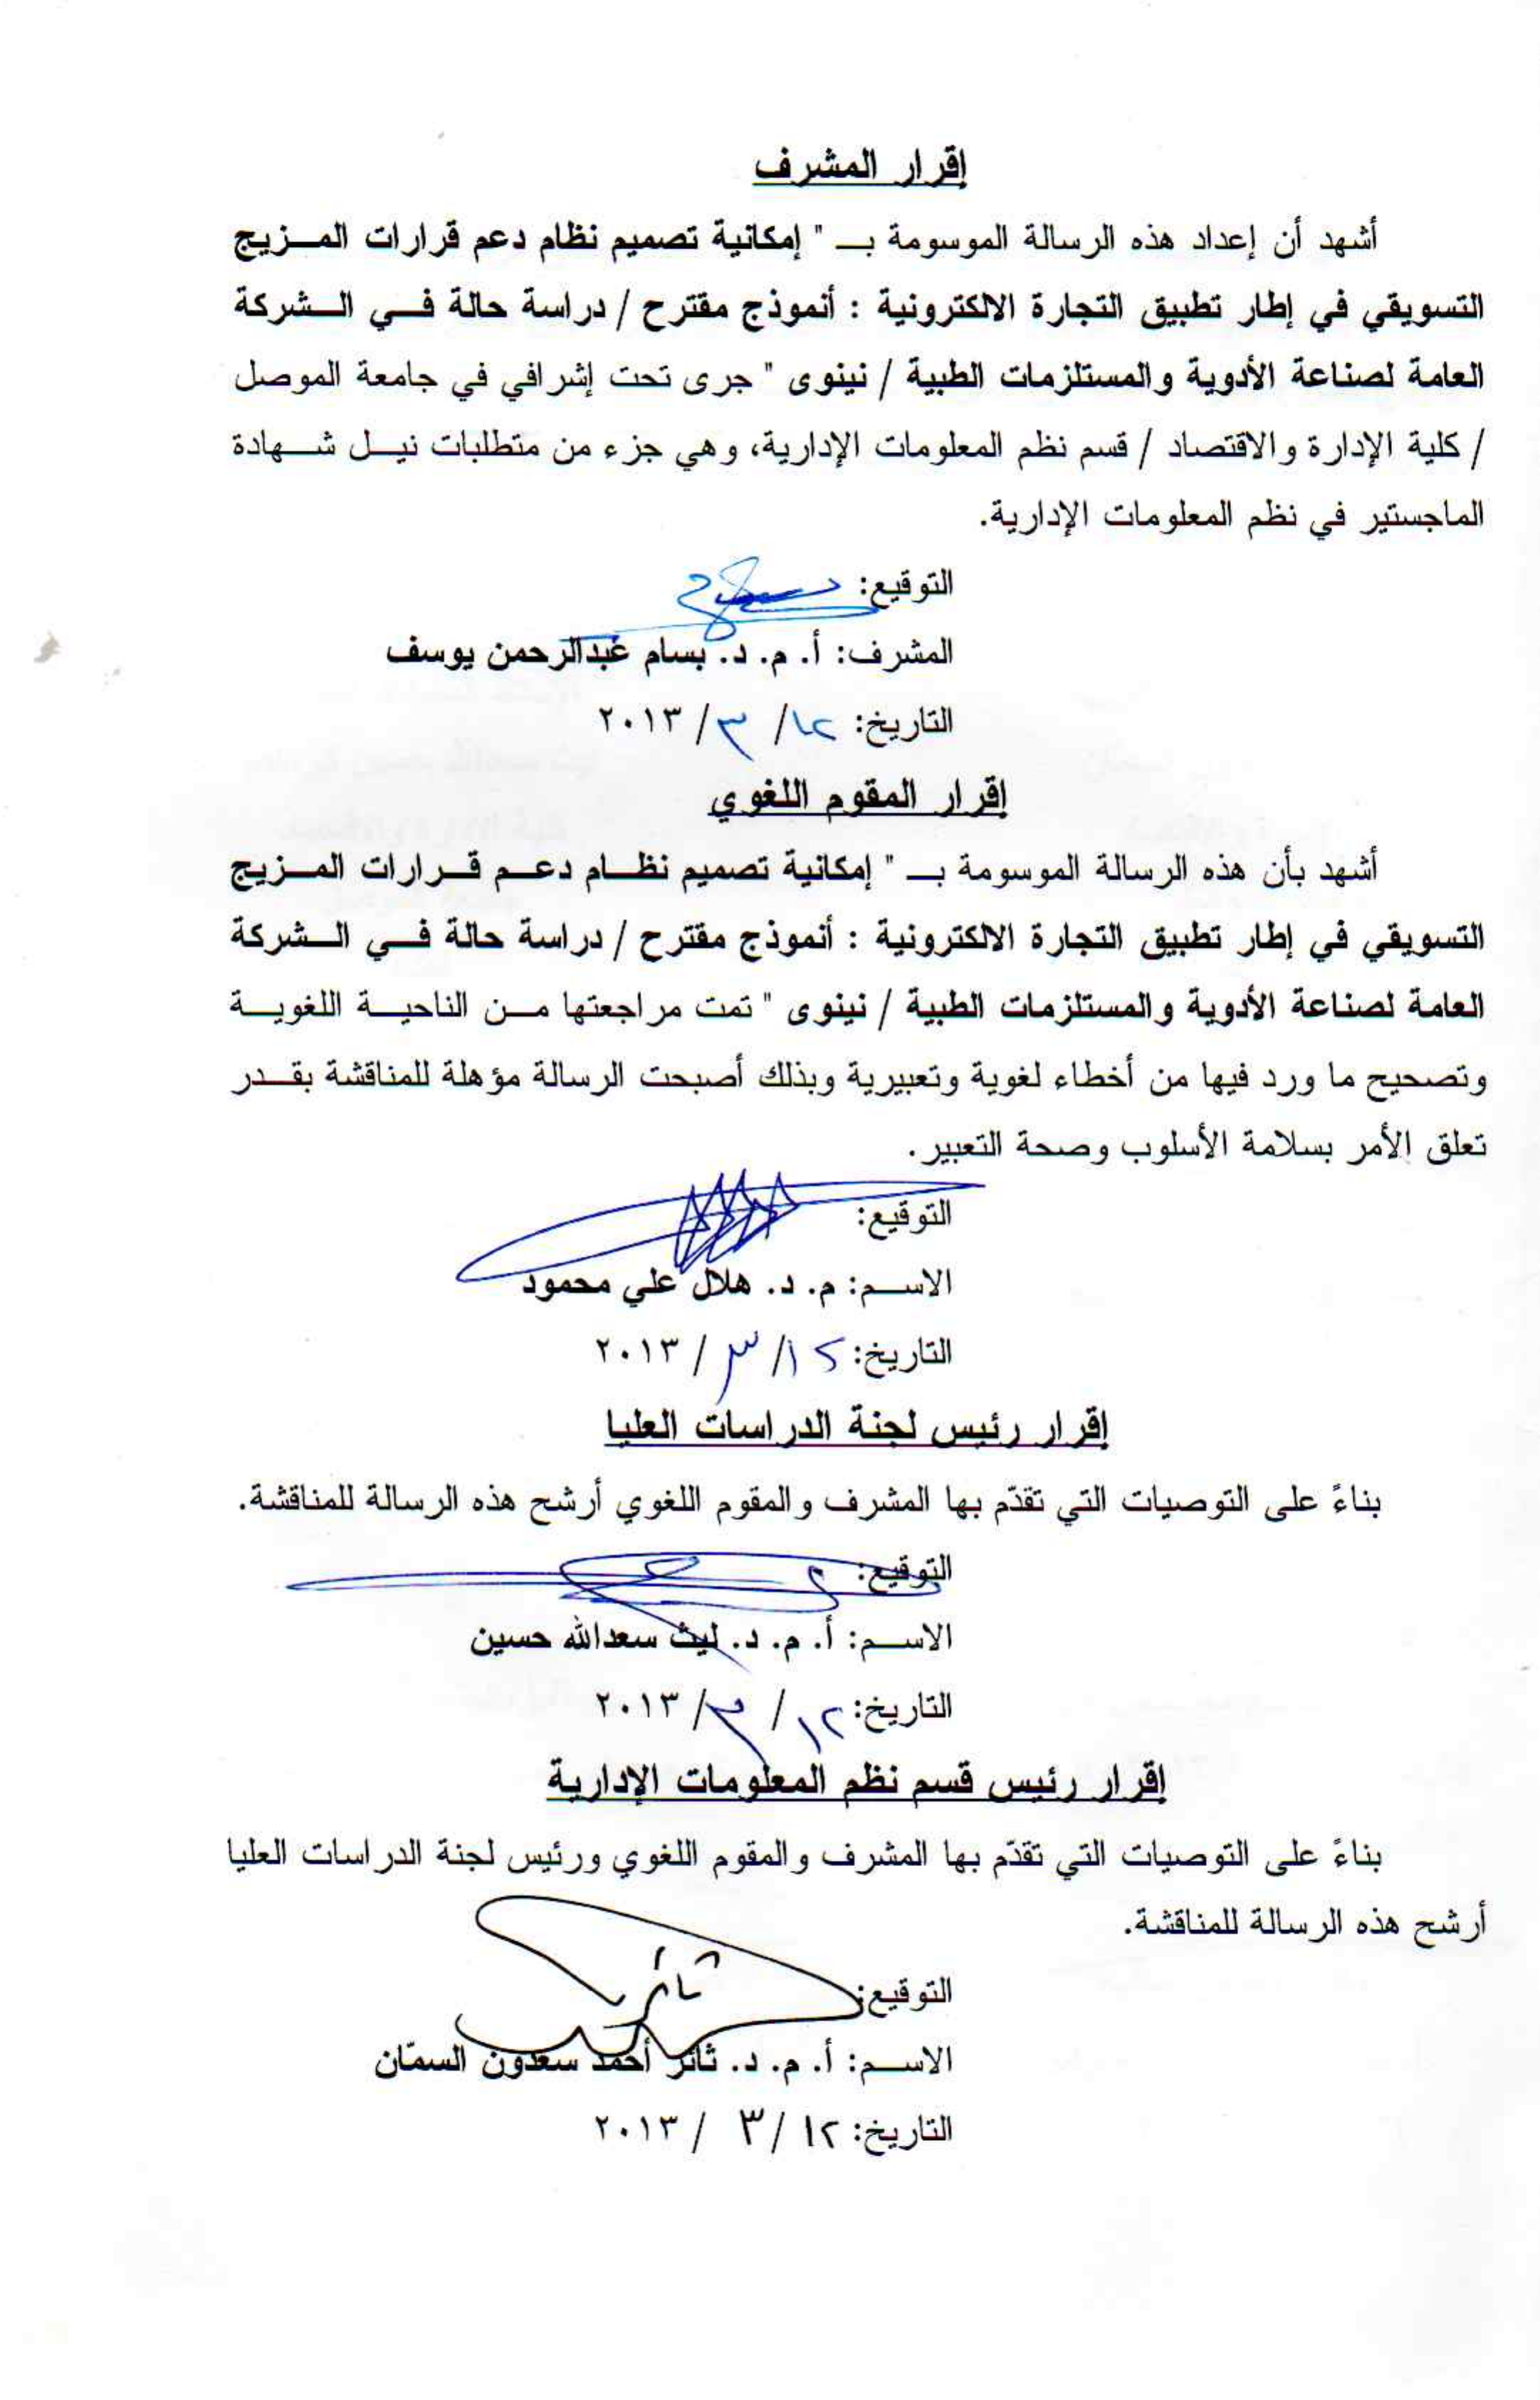 إقرار المشرف
أشهد أن إعداد هذه الرسالة الموسومة بـ " إمكانية تصميم نظام دعم قرارات المزيج
التسويقي في إطار تطبيق التجارة الالكترونية : أنموذج مقترح / دراسة حالة في الشركة
العامة لصناعة الأدوية والمستلزمات الطبية / نينوى " جرى تحت إشرافي في جامعة الموصل
/ كلية الإدارة والاقتصاد / قسم نظم المعلومات الإدارية، وهي جزء من متطلبات نيل شهادة
الماجستير في نظم المعلومات الإدارية.
التوقيع:
المشرف: أ. م. د. بسام عبدالرحمن يوسف
التاريخ: ١٢/ ٣/ ٢٠١٣
إقرار المقوم اللغوي
أشهد بأن هذه الرسالة الموسومة بـ " إمكانية تصميم نظام دعم قرارات المزيج
التسويقي في إطار تطبيق التجارة الالكترونية : أنموذج مقترح / دراسة حالة في الشركة
العامة لصناعة الأدوية والمستلزمات الطبية / نينوى " تمت مراجعتها من الناحية اللغوية
وتصحيح ما ورد فيها من أخطاء لغوية وتعبيرية وبذلك أصبحت الرسالة مؤهلة للمناقشة بقدر
تعلق الأمر بسلامة الأسلوب وصحة التعبير.
التوقيع:
الاسم: م. د. هلال علي محمود
التاريخ: ١٢/ ٣ / ٢٠١٣
إقرار رئيس لجنة الدراسات العليا
بناءً على التوصيات التي تقدّم بها المشرف والمقوم اللغوي أرشح هذه الرسالة للمناقشة.
التوقيع:
الاسم: أ. م. د. ليث سعدالله حسين
التاريخ: ١٢ / ٣/ ٢٠١٣
إقرار رئيس قسم نظم المعلومات الإدارية
بناءً على التوصيات التي تقدّم بها المشرف والمقوم اللغوي ورئيس لجنة الدراسات العليا
أرشح هذه الرسالة للمناقشة.
التوقيع: ثائر
الاسم: أ. م. د. ثائر أحمد سعدون السمّان
التاريخ: ١٢/ ٣ / ٢٠١٣